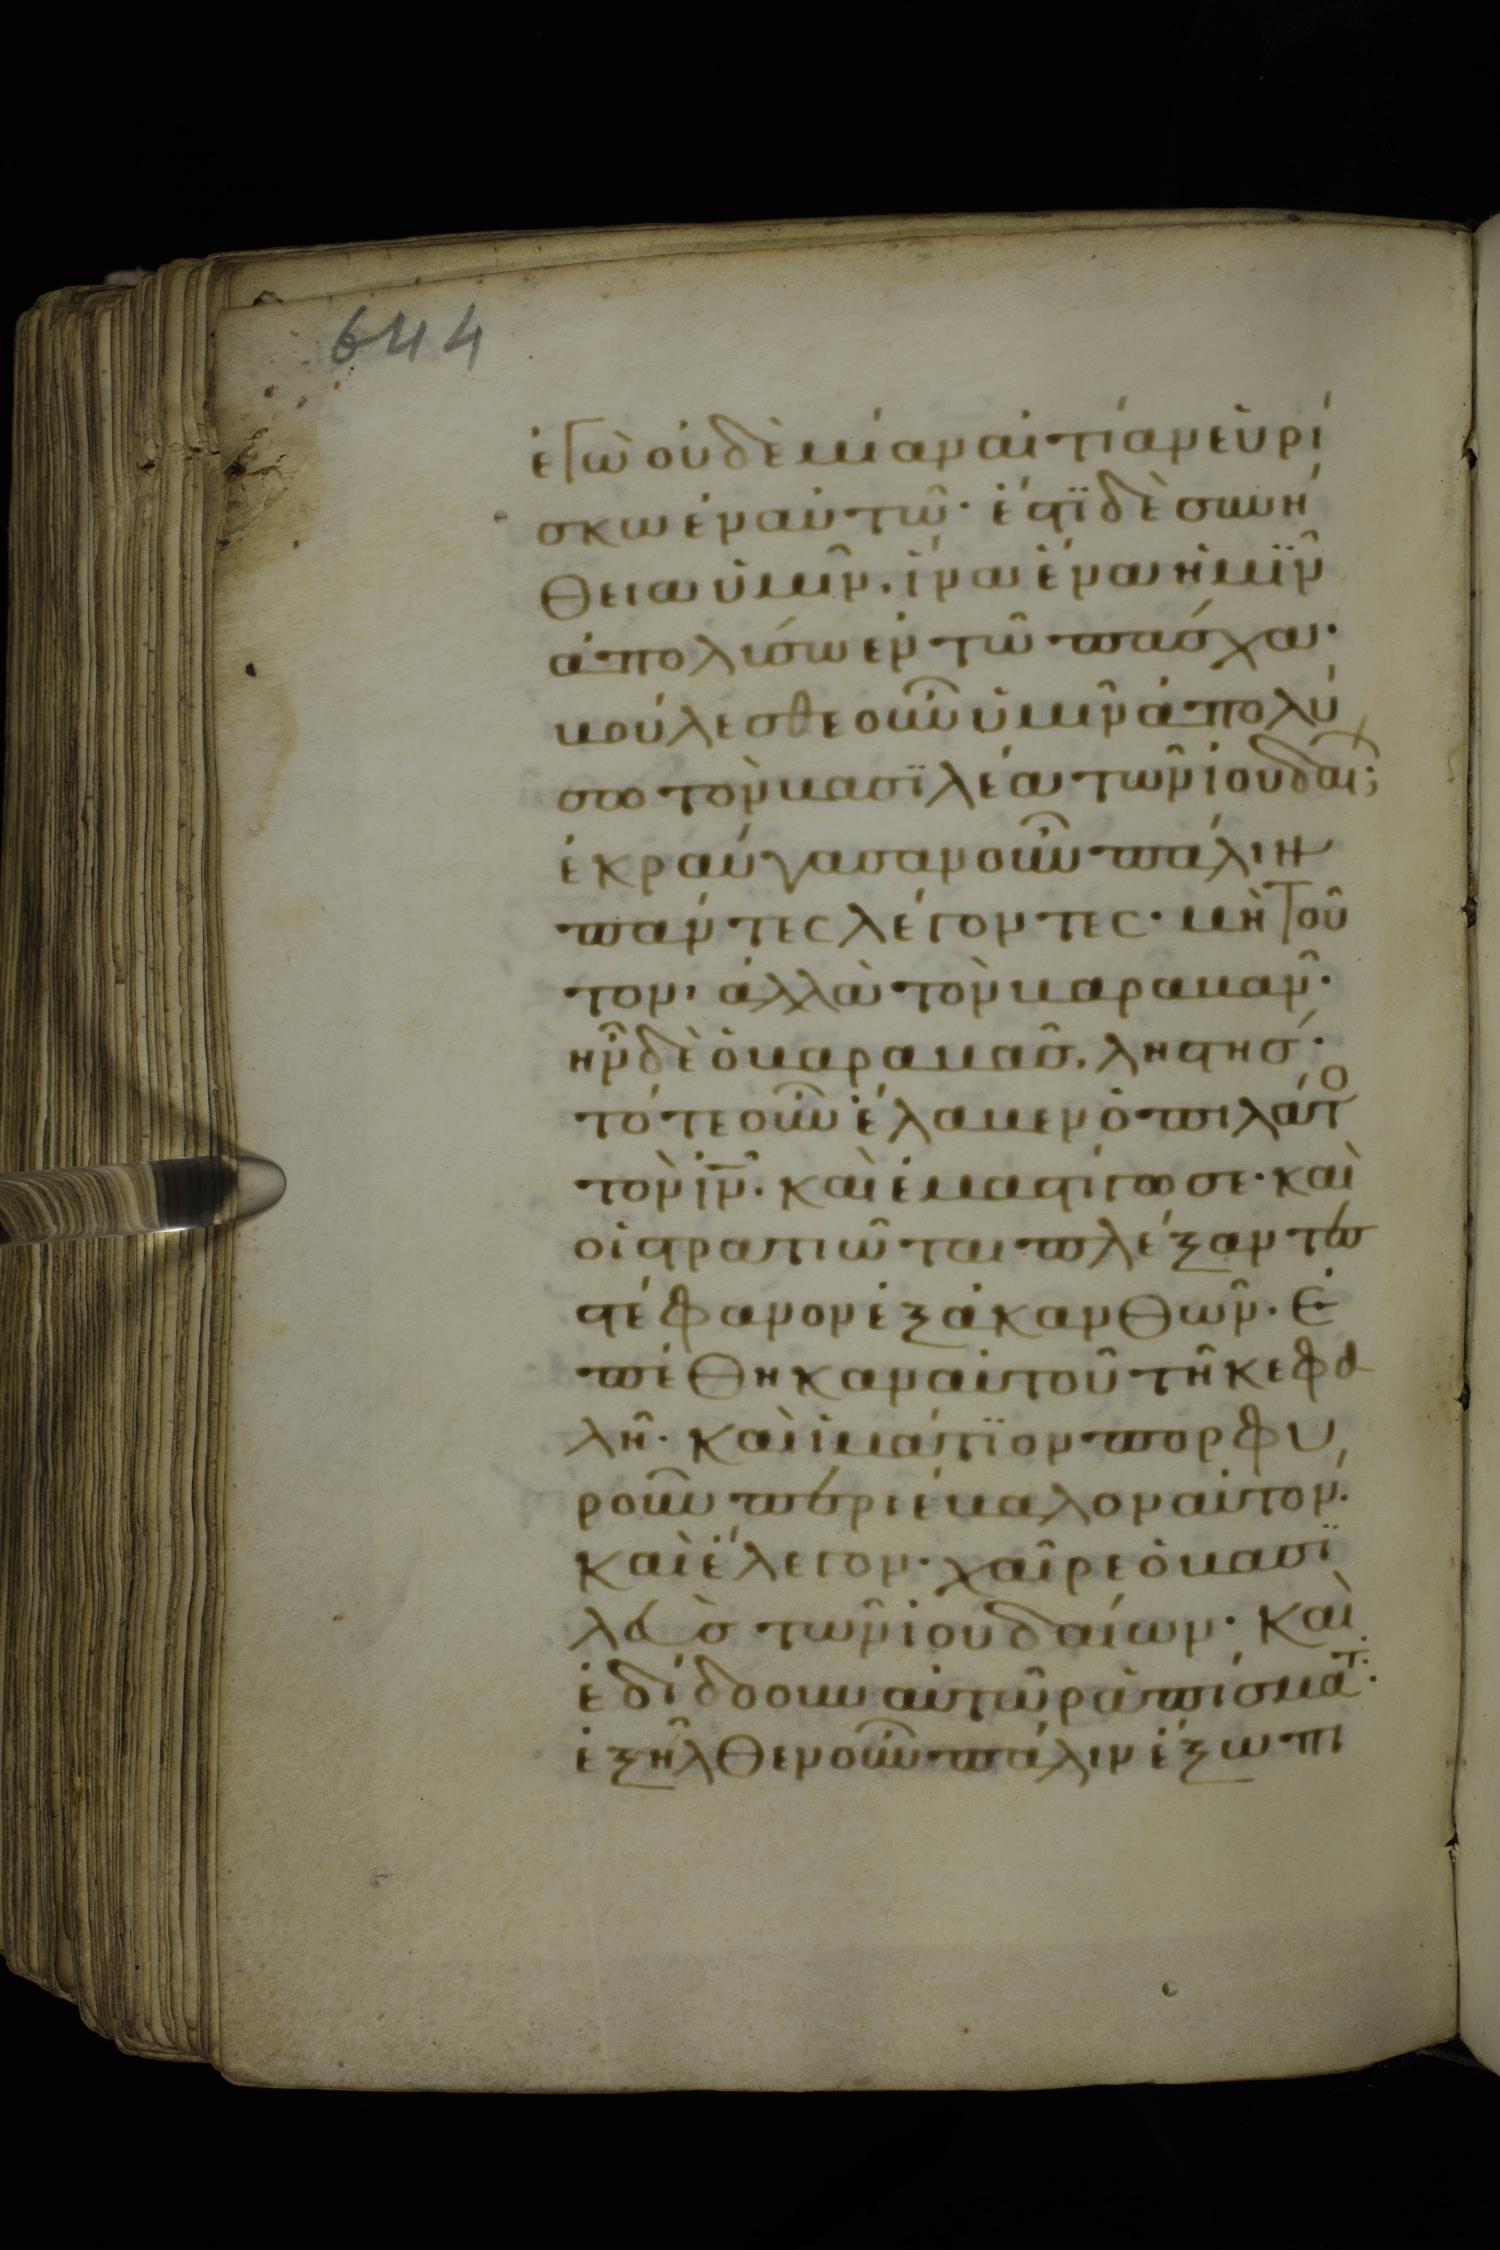 644
ἐγὼ οὐδὲμίαν αἰτίαν εὑρί
σκω ἐν αὐτῶ· ἔστϊ δὲ συνή
θεια ὑμῖν. ἵνα ἕνα ἡμῖν
ἀπολύσω ἐν τῶ πάσχα·
βούλεσθε οῦν ὑμῖν ἀπολύ
σω τὸν βασϊλέα τῶν ἰουδαι;
ἐκραύγασαν οῦν πάλιν
πάντες λέγοντες· μὴ τοῦ
τον, ἀλλὰ τὸν βαραβαν·
ἦν δὲ ὁ βαραβασ. ληστήσ·
τότε οῦν ἔλαβεν ὁ πιλάτο
τὸν ἰν. καὶ ἐμαστίγωσε· καὶ
οἱ στρατιῶται πλέξαντες
στέφανον ἐξ ἀκανθῶν. ἐ
πέθηκαν αὐτοῦ τῆ κεφα
λῆ· καὶ ἱμάτϊον πορφυ
ροῦν περιέβαλον αὐτόν.
καὶ ἔλεγον· χαῖρε ὁ βασϊ
λεὺσ τῶν ἰουδαίων· καὶ
ἐδίδοουν αὐτῶ ραπίσματ·
ἐξῆλθεν οῦν πάλιν ἔξω πι